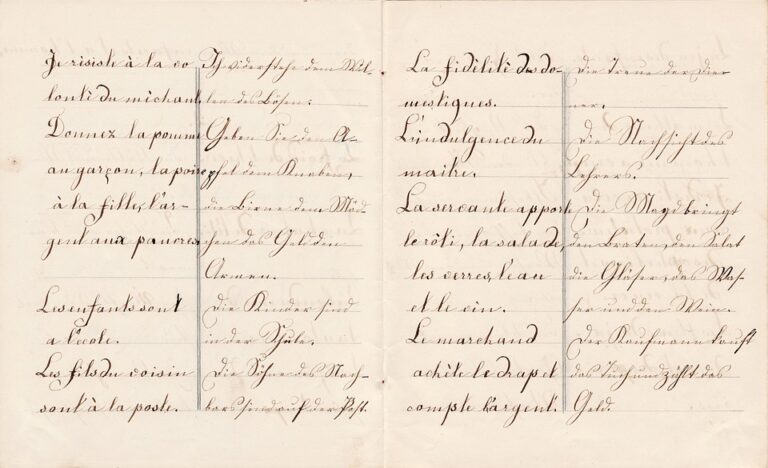 Je risiste à la vo
lonté du michant.
Donnez la pomme
au garçon, la poire
à la fille, l'ar-
gent aux pauvres.
Les enfants sont
a l'école.
Les fils du voisin
sont à la poste.
Ich widerstehe dem Wil-
len des Bösen.
Geben Sie den A-
pfel dem Knaben,
die Birne dem Mäd-
chen das Geld den
Armen.
Die Kinder sind
in der Schule.
Die Söhne des Nach-
bars sind auf der Post.
La fidélité des do-
mestiques.
L'indulgence du
maitre.
La servante apporte
le rôti, la salade,
les verres, l'eau
et le vin.
Le marchand
achète le drap et
compte l'argent.
Die Treue der Die-
ner.
Die Nachsicht des
Lehrers.
Die Magd bringt
den Braten, den Salat
die Gläser, das Was-
ser und den Wein.
Der Kaufmann kauft
das Tuch und zählt das
Geld.